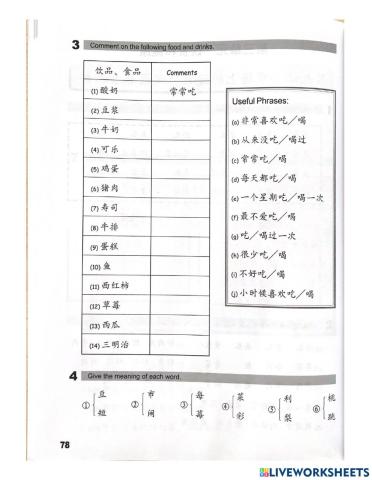 3 Comment on the following food and drinks.
饮品、食品 Comments
(1) 酸奶 常常吃
(2) 豆浆
(3) 牛奶
(4) 可乐
(5) 鸡蛋
(6) 猪肉
(7) 寿司
(8) 牛排
(9) 蛋糕
(10) 鱼
(11) 西红柿
(12) 草莓
(13) 西瓜
(14) 三明治
Useful Phrases:
(a) 非常喜欢吃／喝
(b) 从来没吃／喝过
(c) 常常吃／喝
(d) 每天都吃／喝
(e) 一个星期吃／喝一次
(f) 最不爱吃／喝
(g) 吃／喝过一次
(h) 很少吃／喝
(i) 不好吃／喝
(j) 小时候喜欢吃／喝
4 Give the meaning of each word.
① 豆 短
② 市 闹
③ 每 莓
④ 菜 彩
⑤ 利 梨
⑥ 桃 跳
78
LIVEWORKSHEETS